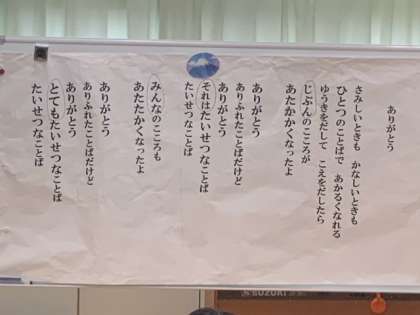 ありがとう
さみしいときも かなしいときも
ひとつのことばで あかるくなれる
ゆうきをだして こえをだしたら
じぶんのこころが
あたたかくなったよ
ありがとう
ありふれたことばだけど
ありがとう
それはたいせつなことば
たいせつなことば
みんなのこころも
あたたかくなったよ
ありがとう
ありふれたことばだけど
ありがとう
とてもたいせつなことば
たいせつなことば
SUZUKI